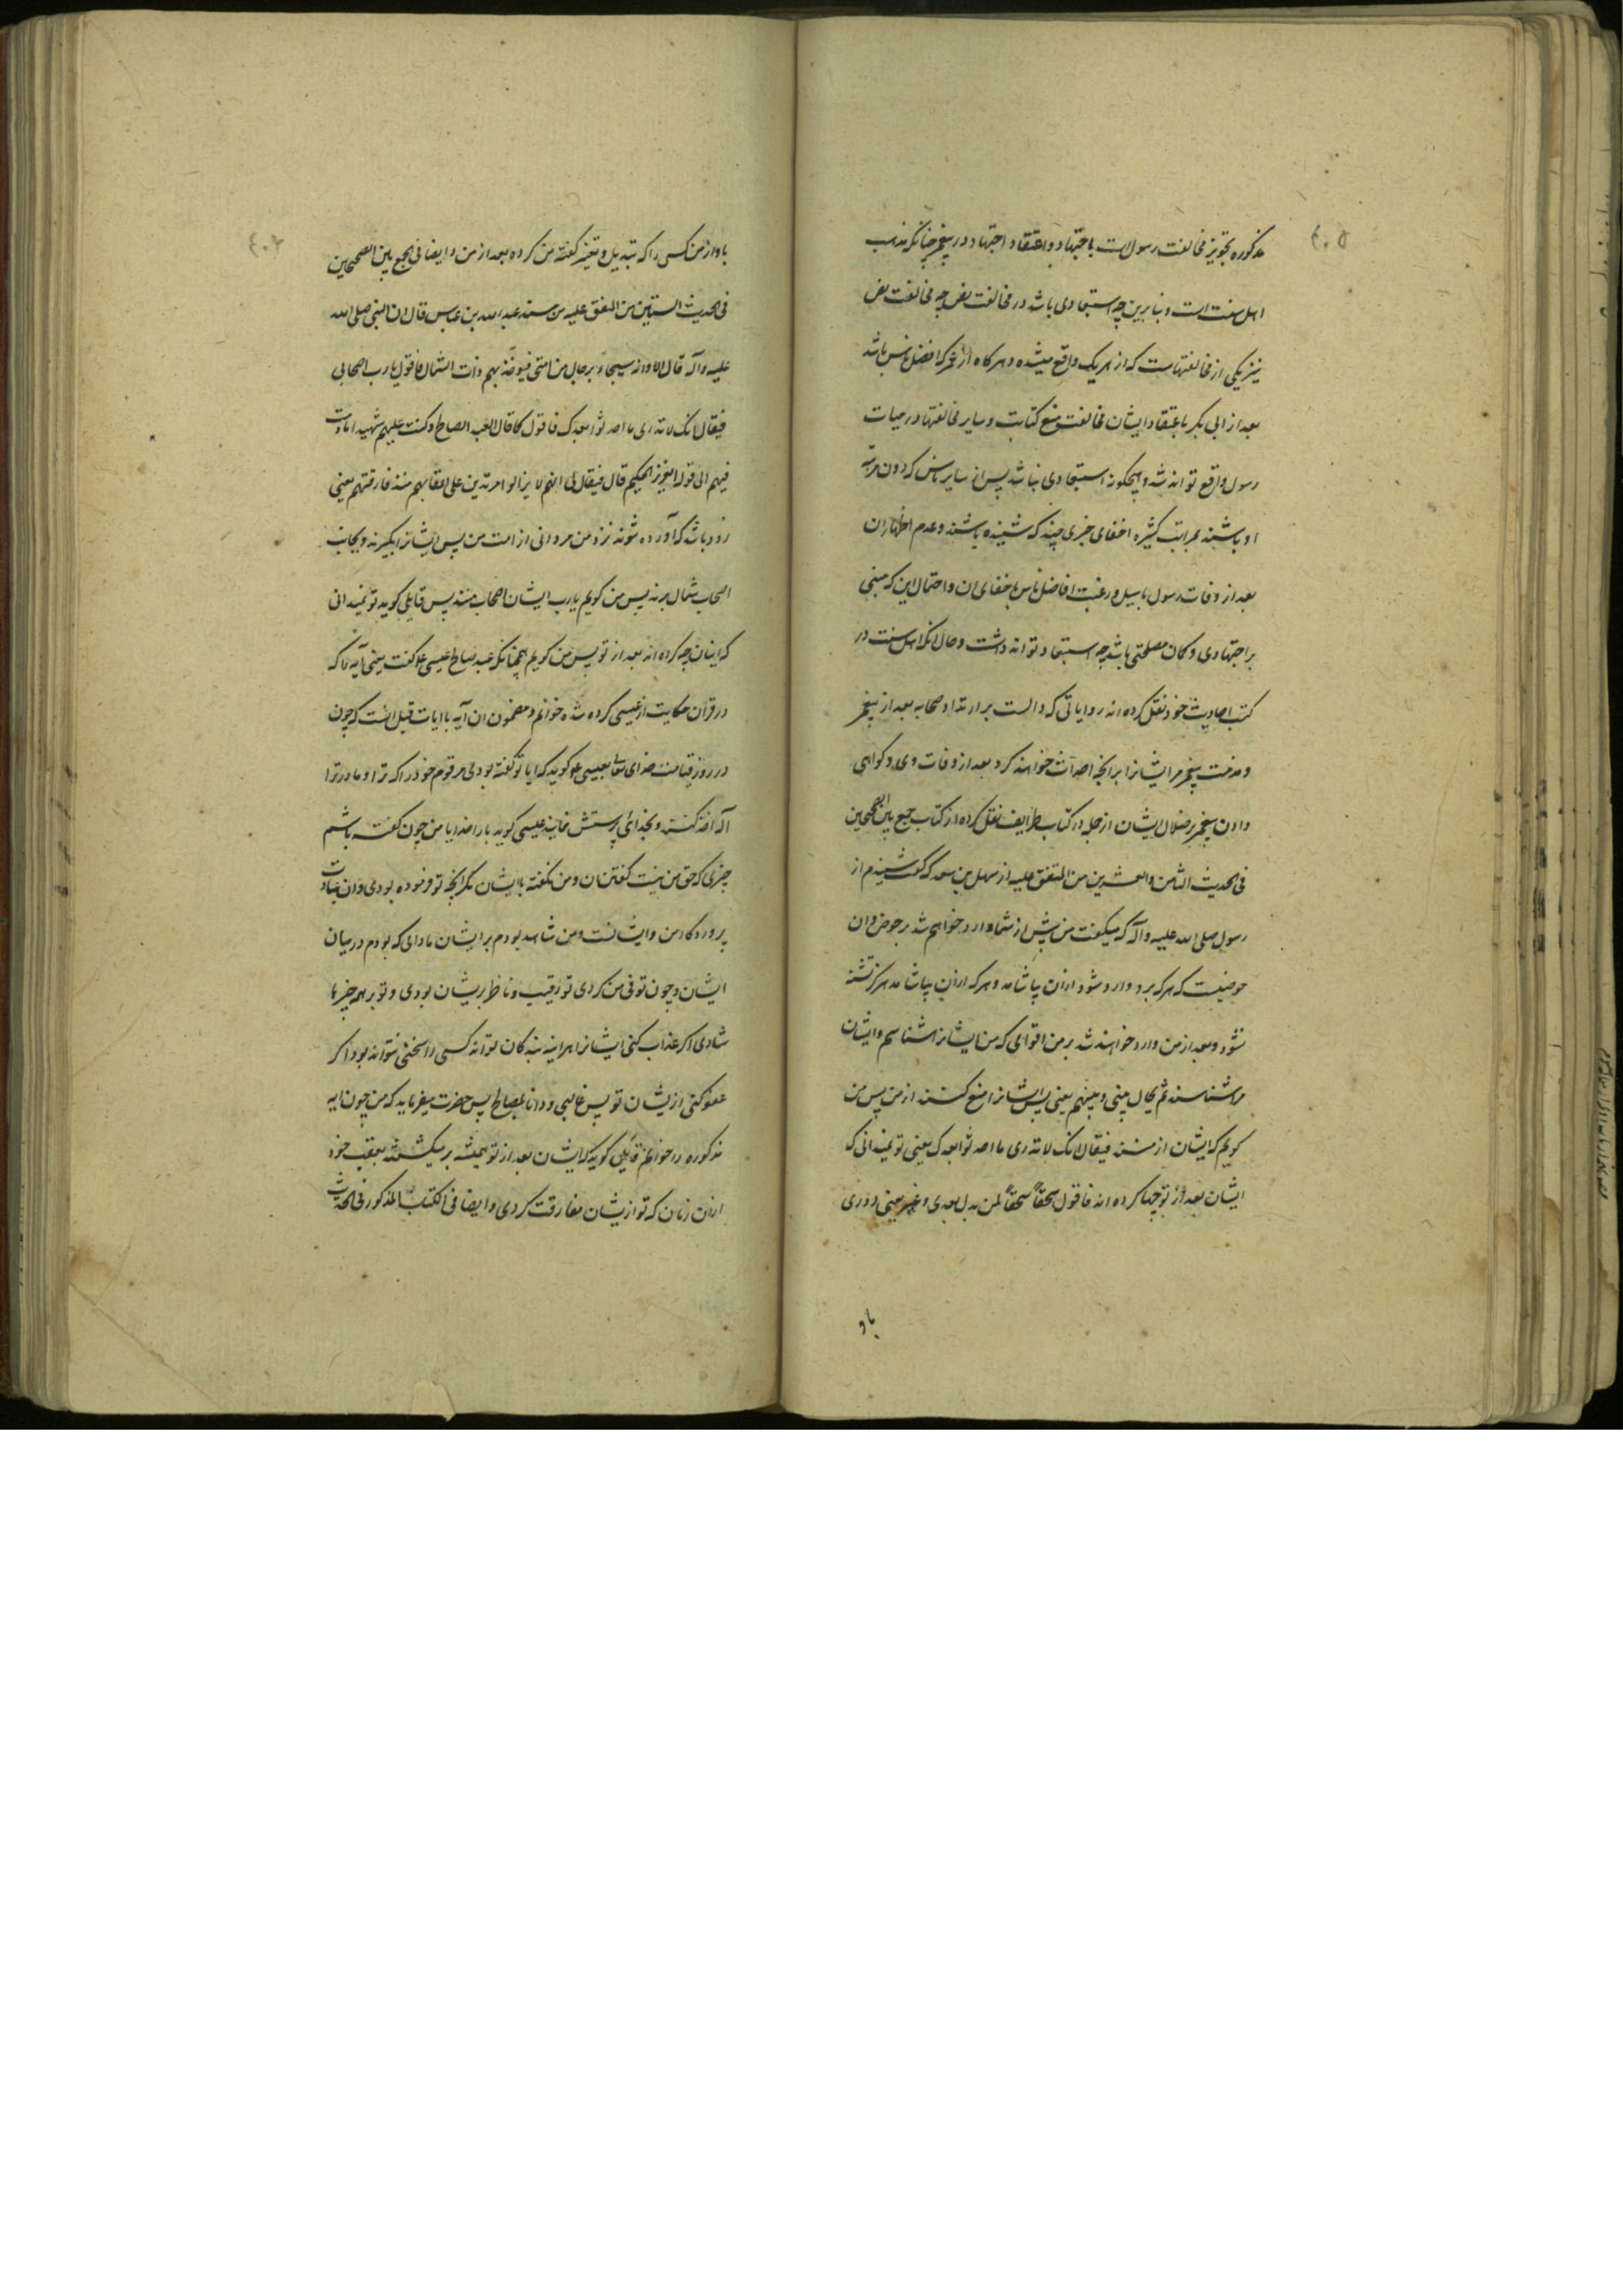 ۴۰۵
مذکوره تجویز مخالفت رسولست باجتهاد و اعتقاد اجتهاد در پیغمبر چنانکه مذهب
اهل سنت است و بنابرین چه استبعادی باشد در مخالفت نص چه مخالفت نص
نیز یکی از مخالفتهاست که از هر یک واقع میشده و هرکاه از عمر که افضل ناس باشد
بعد از ابی بکر باعتقاد ایشان مخالفت منع کتابت و سایر مخالفتها در حیات
رسول واقع تواند شد و هیچکونه استبعادی نباشد پس از سایر ناس که دون مرتبه
او باشند بمراتب کثیره اخفای خبری چند که شنیده باشند و عدم اظهار ان
بعد از وفات رسول با میل و رغبت افاضل ناس باخفای ان و احتمال این که مبنی
بر اجتهادی و کان مصلحتی باشد چه استبعاد تواند داشت و حال انکه اهل سنت در
کتب احادیث خود نقل کرده اند روایاتی که دالست بر ارتداد صحابه بعد از پیغمبر
و مذمت پیغمبر مر ایشانرا بر انچه احداث خواهند کرد بعد از وفات وی و کواهی
دادن پیغمبر بر ضلال ایشان از جمله در کتاب طرایف نقل کرده از کتاب جمع بین الصحیحین
فی الحدیث الثامن و العشرین من المتفق علیه از سهل بن سعد که کفت شنیدم از
رسول صلی الله علیه و آله که میکفت من پیش از شما وارد خواهم شد بر حوض و ان
حوضیست که هر که برو وارد شود ازان بیاشامد و هر که ازان بیاشامد هرکز تشنه
نشود و بعد از من وارد خواهند شد بر من اقوامی که من ایشانرا شناسم و ایشان
مرا شناسند ثم یحال بینی و بینهم یعنی پس ایشانرا منع کنند از من پس من
کویم که ایشان از منند فیقال انک لا تدری ما احدثوا بعدک یعنی تو نمیدانی که
ایشان بعد از تو چها کرده اند فاقول سحقاً سحقاً لمن بدل بعدی و غیر یعنی دوری
باد
۴۰۶
باد از من کسی را که تبدیل و تغییر کفته من کرده بعد از من و ایضا فی الجمع بین الصحیحین
فی الحدیث الستین من المتفق علیه من مسند عبد الله بن عباس قال ان النبی صلی الله
علیه و آله قال الا و انه سیجاء برجال من امتی فیؤخذ بهم ذات الشمال فاقول یا رب اصحابی
فیقال انک لا تدری ما احدثوا بعدک فاقول کما قال العبد الصالح و کنت علیهم شهیدا ما دمت
فیهم الی قوله العزیز الحکیم قال فیقال لی انهم لم یزالوا مرتدین علی اعقابهم منذ فارقتهم یعنی
زود باشد که آورده شوند نزد من مردانی از امت من پس ایشانرا بکیرند و بجانب
اصحاب شمال برند پس من کویم یا رب ایشان اصحاب منند پس قایلی کوید تو نمیدانی
که اینان چه کرده اند بعد از تو پس من کویم همچنانکه عبد صالح عیسی ع کفت یعنی آیه را که
در قرآن حکایت از عیسی کرده شده خوانم و مضمون ان آیه با ایات قبل انست که چون
در روز قیامت خدای تعالی بعیسی ع کوید که ایا تو کفته بودی مر قوم خود را که ترا و مادر ترا
آله اخذ کنند و بخدائی پرستش نمایند عیسی کوید بار خدایا من چون کفته باشم
چیزی که حق من نیست کفتن ان و من نکفته با ایشان مکر انچه تو فرموده بودی و ان عبادت
پروردکار من و ایشانست و من شاهد بودم بر ایشان مادامی که بودم در میان
ایشان و چون توفی من کردی تو رقیب و ناظر بریشان بودی و تو بر همه چیزها
شاهدی اکر عذاب کنی ایشانرا هر اینه بنده کان تواند کسی را سخنی نتواند بود و اکر
عفو کنی از یشان تو پس غالبی و دانا بمصالح پس حضرت میفرماید که من چون ایه
مذکوره را خوانم قائلی کوید که ایشان بعد از تو همیشه بر میکشتند بعقب خود
ازان زمان که تو از یشان مفارقت کردی و ایضا فی الکتاب المذکور فی الحدیث